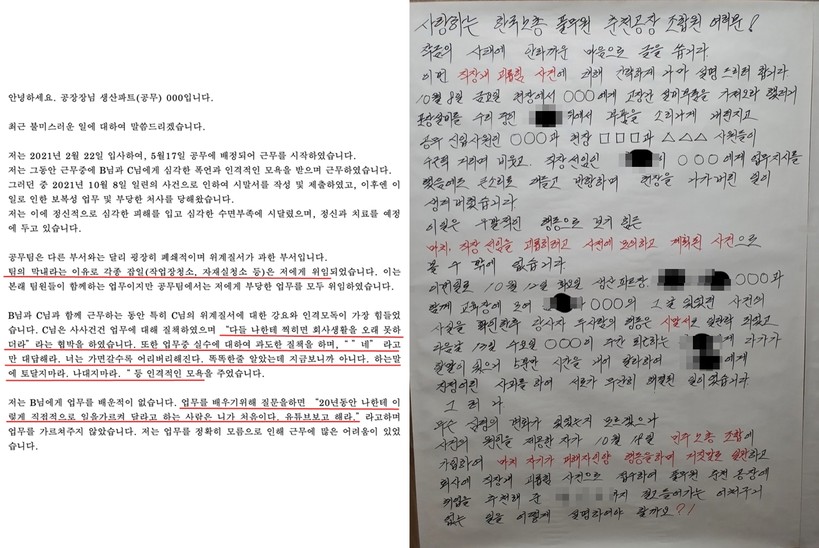 안녕하세요. 공장장님 생산파트(공무) 000입니다.
최근 불미스러운 일에 대하여 말씀드리겠습니다.
저는 2021년 2월 22일 입사하여, 5월17일 공무에 배정되어 근무를 시작하였습니다.
저는 그동안 근무중에 B님과 C님에게 심각한 폭언과 인격적인 모욕을 받으며 근무하였습니다.
그러던 중 2021년 10월 8일 일련의 사건으로 인하여 시말서를 작성 및 제출하였고, 이후엔 이
일로 인한 보복성 업무 및 부당한 처사를 당해왔습니다.
저는 이에 정신적으로 심각한 피해를 입고 심각한 수면부족에 시달렸으며, 정신과 치료를 예정
에 두고 있습니다.
공무팀은 다른 부서와는 달리 굉장히 폐쇄적이며 위계질서가 과한 부서입니다.
팀의 막내라는 이유로 각종 잡일(작업장청소, 자재실청소 등)은 저에게 위임되었습니다. 이는
본래 팀원들이 함께하는 업무이지만 공무팀에서는 저에게 부당한 업무를 모두 위임하였습니다.
B님과 C님과 함께 근무하는 동안 특히 C님의 위계질서에 대한 강요와 인격모독이 가장 힘들었
습니다. C님은 사사건건 업무에 대해 질책하였으며 "다들 나한테 찍히면 회사생활을 오래 못하
더라" 라는 협박을 하였습니다. 또한 업무중 실수에 대하여 과도한 질책을 하며, "" 네" 라고
만 대답해라. 너는 가면갈수록 어리버리해진다. 똑똑한줄 알았는데 지금보니까 아니다. 하는말
에 토달지마라. 나대지마라. " 등 인격적인 모욕을 주었습니다.
저는 B님에게 업무를 배운적이 없습니다. 업무를 배우기위해 질문을하면 "20년동안 나한테 이
렇게 직접적으로 일을가르켜 달라고 하는 사람은 니가 처음이다. 유튜브보고 해라."라고하며
업무를 가르쳐주지 않았습니다. 저는 업무를 정확히 모름으로 인해 근무에 많은 어려움이 있었
습니다.
사랑하는 한국노총 풀무원 춘천공장 조합원 여러분!
최근의 사태에 안타까운 마음으로 글을 씁니다.
이번 직장내 괴롭힘 사건에 대해 간략하게 나마 설명 드리려 합니다
10월 8일 금요일 현장에서 ○○○에게 고장난 설비부품을 가져오라 했더니
포장설비를 수리 중인 뒤에서 부품을 소리나게 내던지고
공무 신입사원인 ○○○과 현장 □□□과 △△△ 사원들이
수근덕 거리며 비웃고. 직장선임인 이 ○○○에게 업무지시를
했음에도 큰소리로 대들고 반항하며 현장을 나가버린 일이
생겨버렸습니다
이일은 우발적인 행동으로 보기 힘든
마치, 직장선임을 괴롭히려고 사전에 모의하고 계획된 사건으로
볼 수 밖에 없습니다
이번일로 10월 12일 화요일 생산 파트장, ○○○과
함께 교육장에 모여 ○○○의 그날 있었던 사건의
사실을 확인한후 당사자 두사람의 행동은 시말서로 일단락 되었고
다음날 13일 수요일 ○○○이 주간 퇴근하는 에게 다가가
할말이 있으니 5분만 시간을 내어 달라하여 에게
직접적인 사과를 하여 서로가 무난히 해결된 일이 있습니다
그러나
무슨 심경의 변화가 있었는지 모르겠으나
사건의 원인을 제공한 자가 10월 18일 민주노총 조합에
가입하여 마치 자기가 피해자인양 행동을하며 거짓말로 일관하고
회사에 직장내 괴롭힘 사건으로 접수하여 풀무원 춘천 공장에
취업을 추천해 준 까지 걸고들어가는 어처구니
없는 일을 어떻게 설명하여야 할까요?!